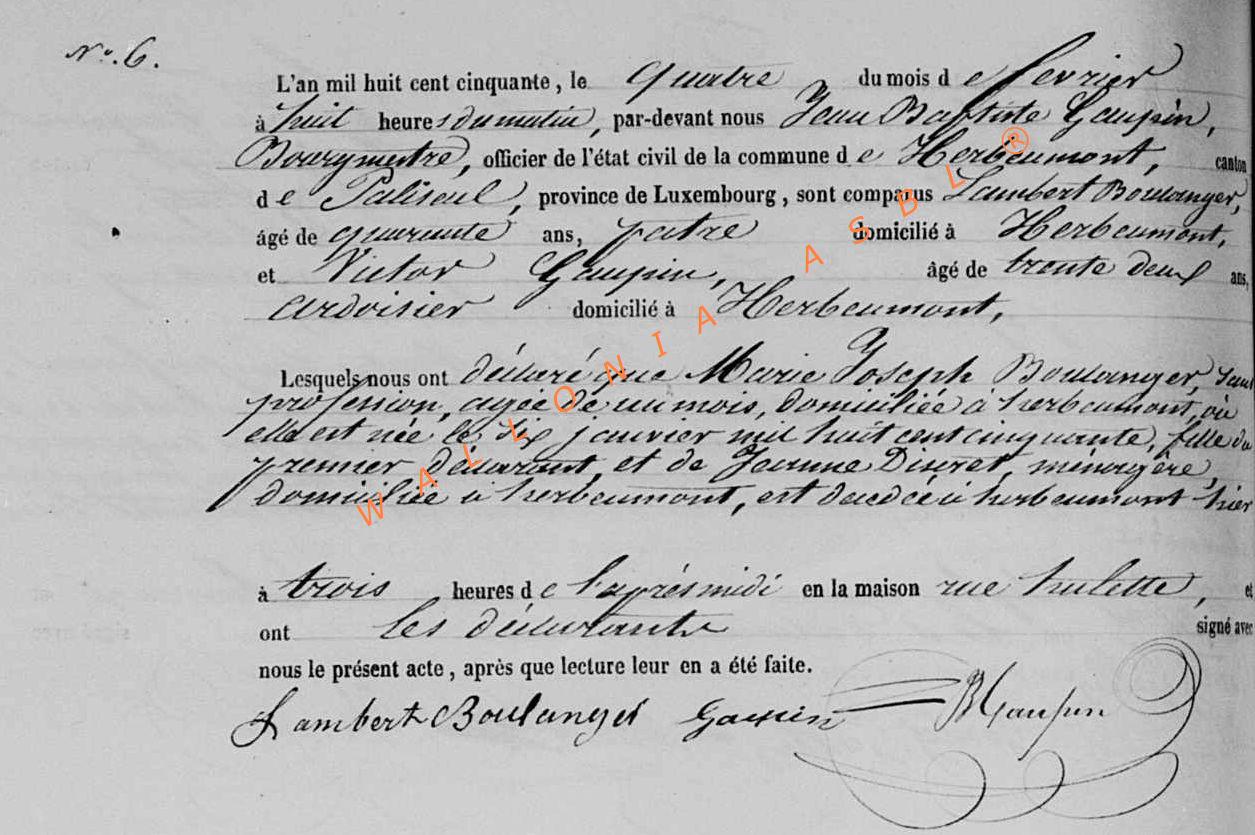 No. 6.
L'an mil huit cent cinquante, le quatre du mois de fevrier
à huit heures du matin, par-devant nous Jean Baptiste Gaupin,
Bourgmestre, officier de l'état civil de la commune de Herbeumont, canton
de Paliseul, province de Luxembourg, sont comparus Lambert Boulanger,
âgé de quarante ans, patre domicilié à Herbeumont,
et Victor Gaupin, âgé de trente deux ans,
ardoisier domicilié à Herbeumont,
Lesquels nous ont déclaré que Marie Joseph Boulanger, sans
profession, agée de un mois, domiciliée à herbeumont, où
elle est née le six janvier mil huit cent cinquante, fille du
premier déclarant, et de Jeanne ménagère,
domiciliée à herbeumont, est decedée à herbeumont hier
à trois heures de l'aprésmidi en la maison rue hulette, et
ont les déclarants signé avec
nous le présent acte, après que lecture leur en a été faite.
Lambert Boulanger Gaupin JBGaupin
WALLONIA ASBL ®